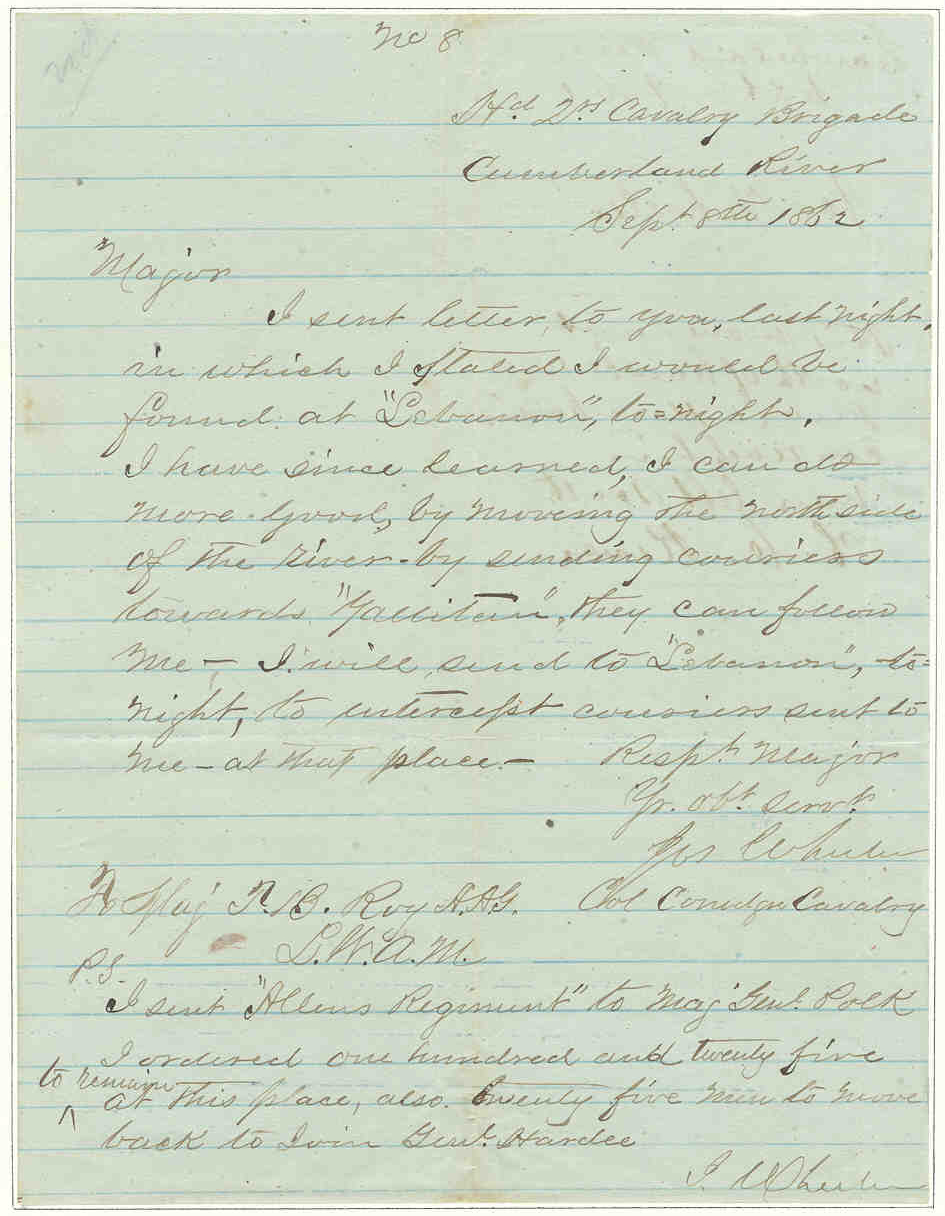 No 8
Hd 2nd Cavalry Brigade
Cumberland River
Sept. 8th 1862
Major
I sent letter, to you, last night,
in which I stated I would be
found at "Lebanon", to=night.
I have since learned, I can do
more good, by moving the north side
of the river - by sending couriers
towards "Gallitan", they can follow
me - I will, send to "Lebanon", to=
night, to intercept couriers sent to
me - at that place. -
Respt. Major
Yr. obt. servt.
Jos Wheeler
To Maj T. B. Roy A.A.G.
Col Comdgn Cavalry
L.W.A.M.
P.S.
I sent "Allens Regiment" to Maj Genl. Polk
I ordered one hundred and twenty five
to remain
^ at this place, also twenty five men to move
back to Join Genl. Hardee
J. Wheeler